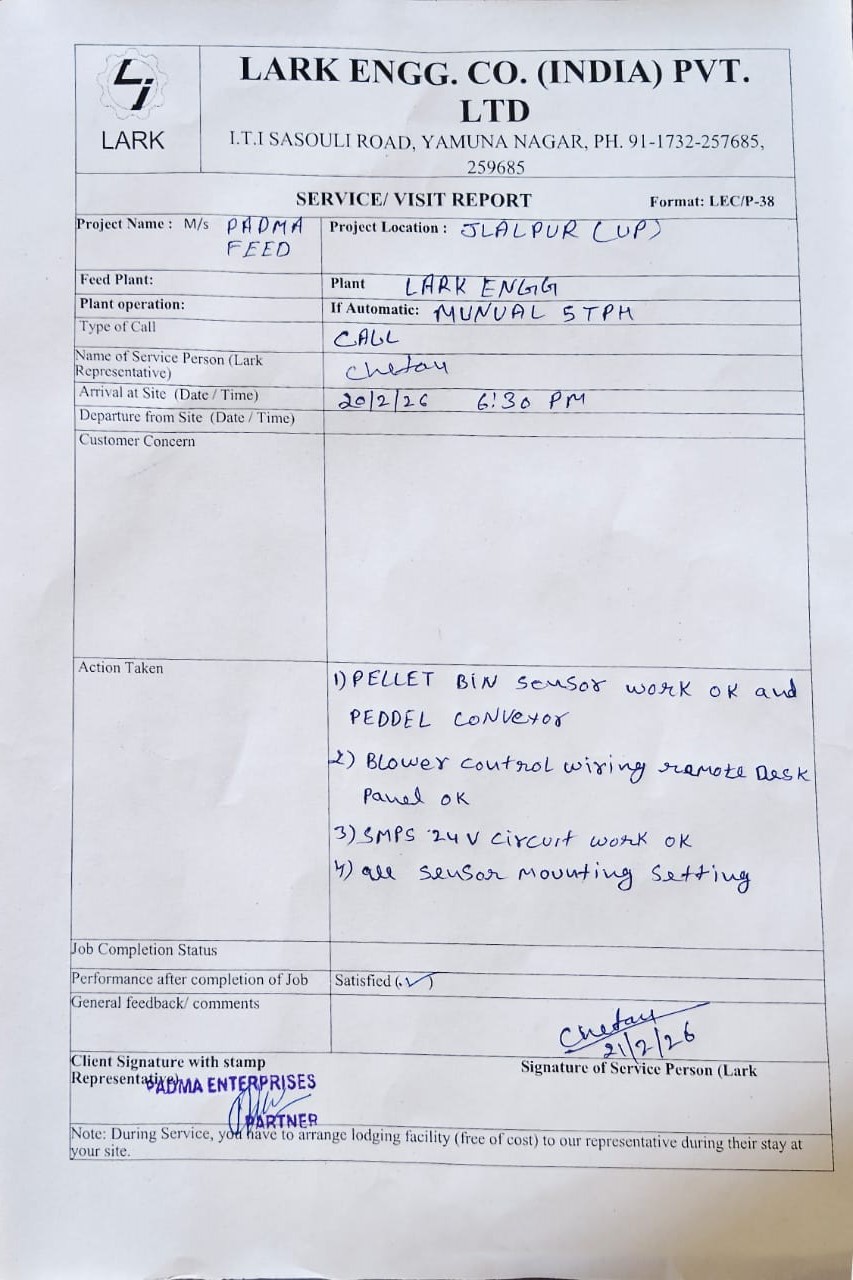 LARK
LARK ENGG. CO. (INDIA) PVT.
LTD
I.T.I SASOULI ROAD, YAMUNA NAGAR, PH. 91-1732-257685,
259685
SERVICE/ VISIT REPORT Format: LEC/P-38
Project Name : M/s PADMA Project Location : JLALPUR (UP)
FEED
Feed Plant: Plant LARK ENGG
Plant operation: If Automatic: MUNUAL 5TPH
Type of Call CALL
Name of Service Person (Lark
Representative) Chetan
Arrival at Site (Date / Time) 20/2/26 6:30 PM
Departure from Site (Date / Time)
Customer Concern
Action Taken
1) PELLET BIN sensor work ok and
PEDDEL CONVEYOR
2) Blower control wiring remote Desk
Panel OK
3) SMPS 24 V circuit work OK
4) all sensor mounting setting
Job Completion Status
Performance after completion of Job Satisfied (✓)
General feedback/ comments
Chetan
21/2/26
Client Signature with stamp Signature of Service Person (Lark
Representative)
PADMA ENTERPRISES
PARTNER
Note: During Service, you have to arrange lodging facility (free of cost) to our representative during their stay at
your site.